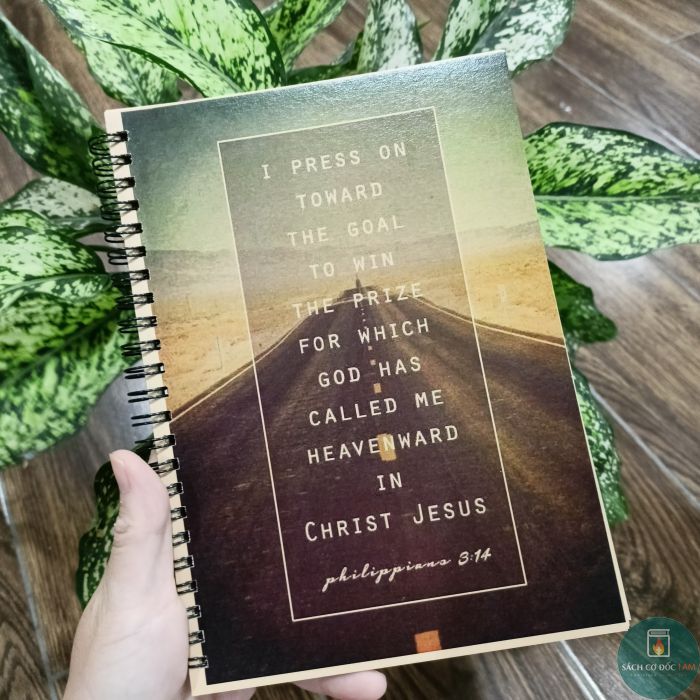 I PRESS ON
TOWARD
THE GOAL
TO WIN
THE PRIZE
FOR WHICH
GOD HAS
CALLED ME
HEAVENWARD
IN
CHRIST JESUS
philippians 3:14
SÁCH CƠ ĐỐC | AM